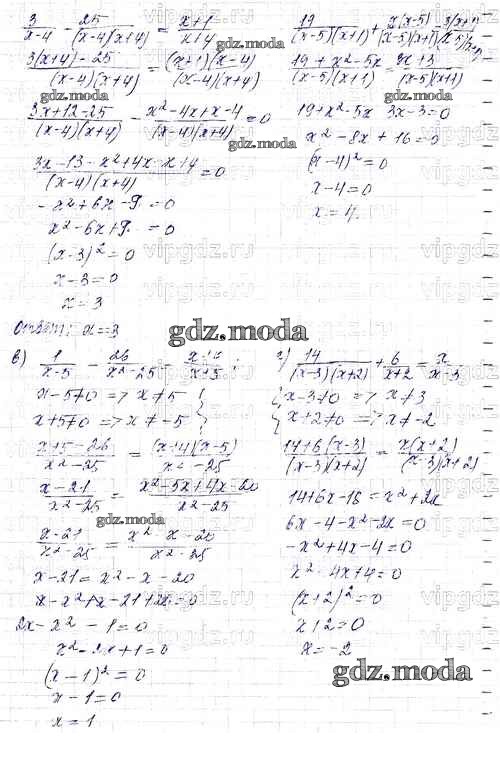 3/(x-4) - 25/((x-4)(x+4)) = (x+1)/(x+4)
(3(x+4)-25)/((x-4)(x+4)) = ((x+1)(x-4))/((x-4)(x+4))
gdz.moda
(3x+12-25)/((x-4)(x+4)) - (x²-4x+x-4)/((x-4)(x+4)) = 0
(3x-13-x²+4x-x+4)/((x-4)(x+4)) = 0
-x²+6x-9 = 0
x²-6x+9 = 0
(x-3)² = 0
x-3=0
x=3
Ответ: x=3
19/((x-5)(x+1)) + x(x-5)/((x-5)(x+1))
(19+x²-5x)/((x-5)(x+1))
gdz.moda
19+x²-5x 3x-3=0
x²-8x+16=0
(x-4)²=0
x-4=0
x=4
gdz.moda
в) 1/(x-5) - 26/(x²-25)
x-5≠0 => x≠5
x+5≠0 => x≠-5
(x+5-26)/(x²-25) = ((x+4)(x-5))/(x²-25)
(x-21)/(x²-25) = (x²-5x+4x-20)/(x²-25)
gdz.moda
(x-21)/(x²-25) = (x²-x-20)/(x²-25)
x-21=x²-x-20
2x-x²-1=0
x²-2x+1=0
(x-1)²=0
x-1=0
x=1
г) 14/((x-3)(x+2)) + 6/(x+2) = x/(x-3)
x-3≠0 => x≠3
x+2≠0 => x≠-2
(14+6(x-3))/((x-3)(x+2)) = x(x+2)/((x-3)(x+2))
14+6x-18=x²+2x
6x-4-x²-2x=0
-x²+4x-4=0
x²-4x+4=0
(x+2)²=0
x+2=0
x=-2
gdz.moda
vipgdz.ru